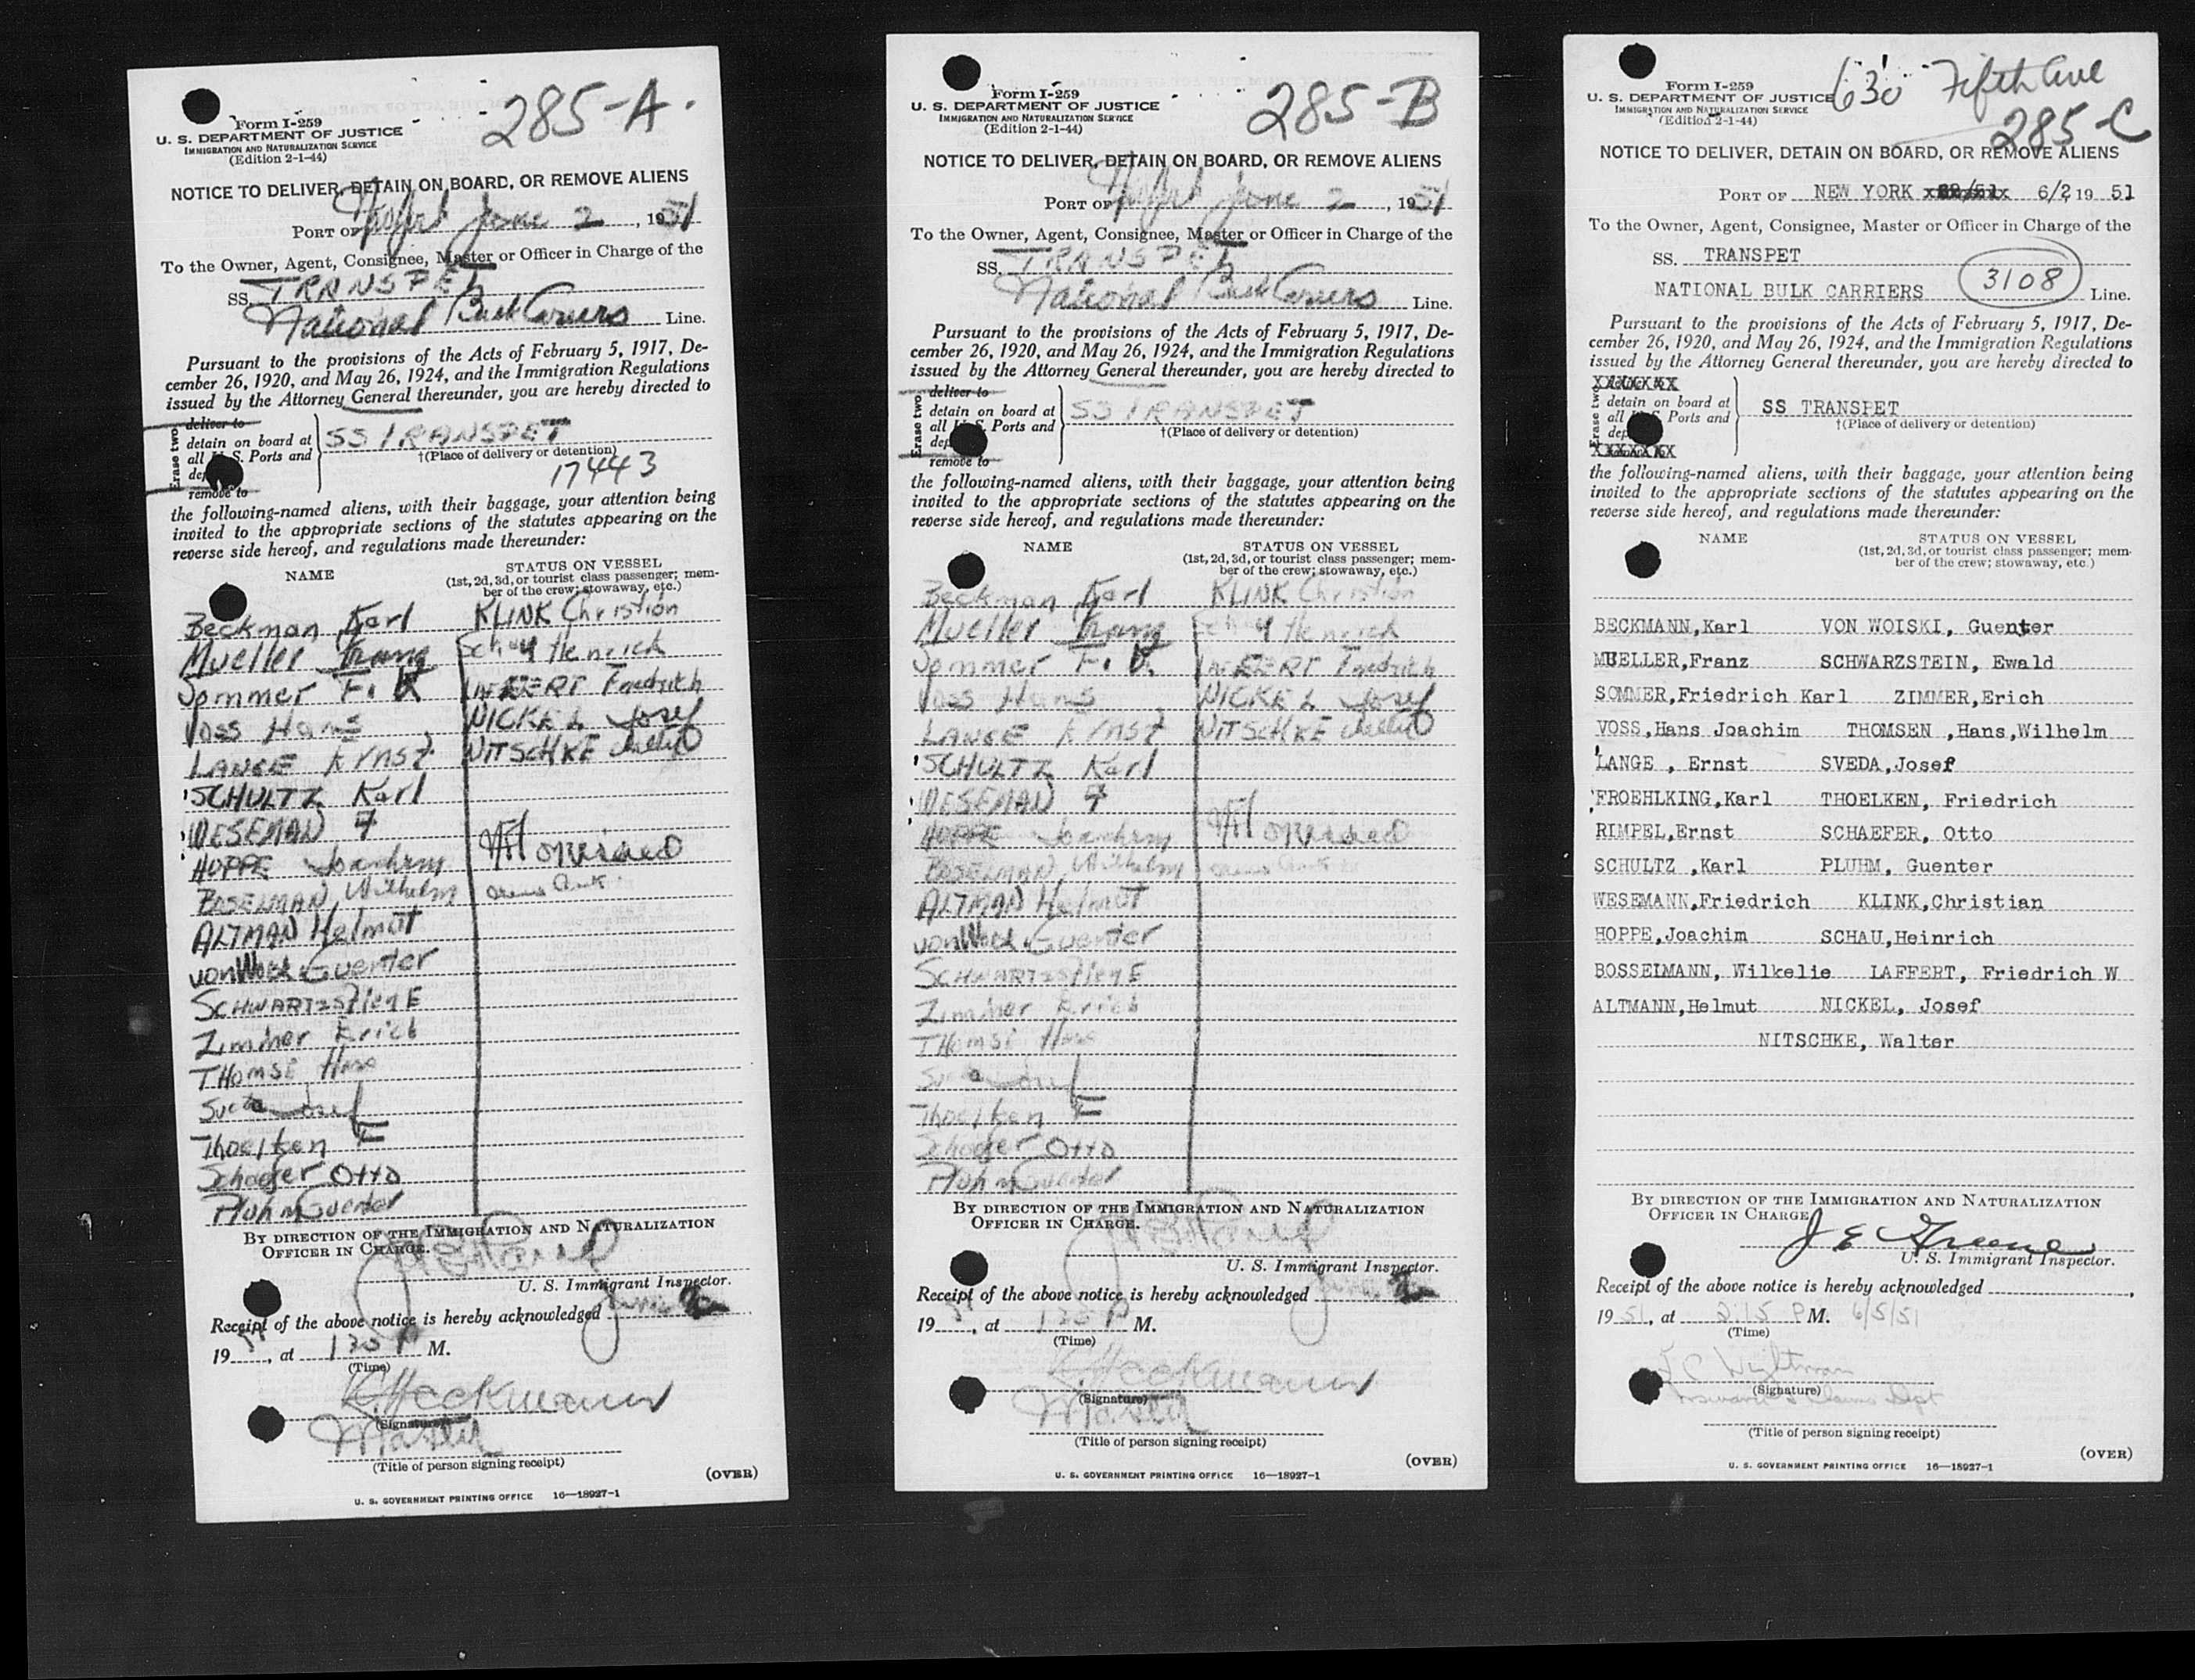 285-A.
Form I-259
U. S. DEPARTMENT OF JUSTICE
IMMIGRATION AND NATURALIZATION SERVICE
(Edition 2-1-44)
NOTICE TO DELIVER, DETAIN ON BOARD, OR REMOVE ALIENS
PORT OF June 2, 1951
To the Owner, Agent, Consignee, Master or Officer in Charge of the
SS. TRANSPET
National Bulk Carriers Line.
Pursuant to the provisions of the Acts of February 5, 1917, De-
cember 26, 1920, and May 26, 1924, and the Immigration Regulations
issued by the Attorney General thereunder, you are hereby directed to
Erase two
deliver to
detain on board at
all U. S. Ports and
remove to
SS TRANSPET
†(Place of delivery or detention)
17443
the following-named aliens, with their baggage, your attention being
invited to the appropriate sections of the statutes appearing on the
reverse side hereof, and regulations made thereunder:
NAME STATUS ON VESSEL
(1st, 2d, 3d, or tourist class passenger; mem-
ber of the crew; stowaway, etc.)
Beckman Karl KLINK Christian
Mueller Franz Henrick
Sommer F. K. Friedrich
Voss Hans NICKEL Josef
LANGE Ernst NITSCHKE
SCHULTZ Karl
WESEMAN F
HOPPE Joachim
BOSELMAN Wilhelm
ALTMAN Helmut
von Guenter
SCHWARTZSTIEN E
Zimmer Erich
THOMSE Hans
Josef
Thoelken F
Schaefer Otto
Pluhm Guenter
BY DIRECTION OF THE IMMIGRATION AND NATURALIZATION
OFFICER IN CHARGE.
U. S. Immigrant Inspector.
Receipt of the above notice is hereby acknowledged June 2
1951, at 135 P M.
(Time)
(Signature)
Master
(Title of person signing receipt)
(OVER)
U. S. GOVERNMENT PRINTING OFFICE 16—18927-1
285-B
Form I-259
U. S. DEPARTMENT OF JUSTICE
IMMIGRATION AND NATURALIZATION SERVICE
(Edition 2-1-44)
NOTICE TO DELIVER, DETAIN ON BOARD, OR REMOVE ALIENS
PORT OF June 2, 1951
To the Owner, Agent, Consignee, Master or Officer in Charge of the
SS. TRANSPET
National Bulk Carriers Line.
Pursuant to the provisions of the Acts of February 5, 1917, De-
cember 26, 1920, and May 26, 1924, and the Immigration Regulations
issued by the Attorney General thereunder, you are hereby directed to
Erase two
deliver to
detain on board at
all U. S. Ports and
remove to
SS TRANSPET
†(Place of delivery or detention)
the following-named aliens, with their baggage, your attention being
invited to the appropriate sections of the statutes appearing on the
reverse side hereof, and regulations made thereunder:
NAME STATUS ON VESSEL
(1st, 2d, 3d, or tourist class passenger; mem-
ber of the crew; stowaway, etc.)
Beckman Karl KLINK Christian
Mueller Franz Henrick
Sommer F. K. Friedrich
Voss Hans NICKEL Josef
LANGE Ernst NITSCHKE
SCHULTZ Karl
WESEMAN F
HOPPE Joachim
BOSELMAN Wilhelm
ALTMAN Helmut
von Guenter
SCHWARTZSTIEN E
Zimmer Erich
THOMSE Hans
Josef
Thoelken F
Schaefer Otto
Pluhm Guenter
BY DIRECTION OF THE IMMIGRATION AND NATURALIZATION
OFFICER IN CHARGE.
U. S. Immigrant Inspector.
Receipt of the above notice is hereby acknowledged June 2
1951, at 135 P M.
(Time)
(Signature)
Master
(Title of person signing receipt)
(OVER)
U. S. GOVERNMENT PRINTING OFFICE 16—18927-1
630 Fifth Ave
285-C
Form I-259
U. S. DEPARTMENT OF JUSTICE
IMMIGRATION AND NATURALIZATION SERVICE
(Edition 2-1-44)
NOTICE TO DELIVER, DETAIN ON BOARD, OR REMOVE ALIENS
PORT OF NEW YORK 6/2 19 51
To the Owner, Agent, Consignee, Master or Officer in Charge of the
SS. TRANSPET
3108
NATIONAL BULK CARRIERS Line.
Pursuant to the provisions of the Acts of February 5, 1917, De-
cember 26, 1920, and May 26, 1924, and the Immigration Regulations
issued by the Attorney General thereunder, you are hereby directed to
Erase two
detain on board at
all U. S. Ports and
SS TRANSPET
†(Place of delivery or detention)
the following-named aliens, with their baggage, your attention being
invited to the appropriate sections of the statutes appearing on the
reverse side hereof, and regulations made thereunder:
NAME STATUS ON VESSEL
(1st, 2d, 3d, or tourist class passenger; mem-
ber of the crew; stowaway, etc.)
BECKMANN,Karl VON WOISKI, Guenter
MUELLER,Franz SCHWARZSTEIN, Ewald
SOMMER,Friedrich Karl ZIMMER,Erich
VOSS,Hans Joachim THOMSEN ,Hans,Wilhelm
LANGE , Ernst SVEDA,Josef
FROEHLKING,Karl THOELKEN, Friedrich
RIMPEL,Ernst SCHAEFER, Otto
SCHULTZ ,Karl PLUHM, Guenter
WESEMANN,Friedrich KLINK,Christian
HOPPE,Joachim SCHAU,Heinrich
BOSSEIMANN, Wilkelie LAFFERT, Friedrich W
ALTMANN,Helmut NICKEL, Josef
NITSCHKE, Walter
BY DIRECTION OF THE IMMIGRATION AND NATURALIZATION
OFFICER IN CHARGE
J E Greene
U. S. Immigrant Inspector.
Receipt of the above notice is hereby acknowledged
1951, at 2:15 P M. 6/5/51
(Time)
(Signature)
Dept
(Title of person signing receipt)
(OVER)
U. S. GOVERNMENT PRINTING OFFICE 16—18927-1